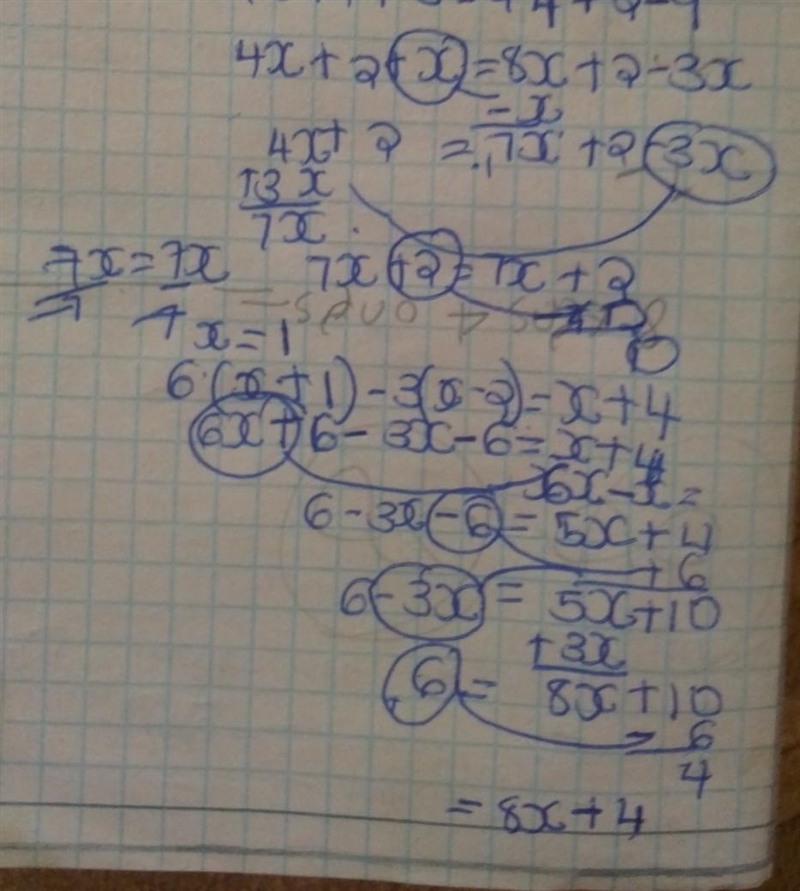 4x + 2 + x = 8x + 2 - 3x
- x
4x + 2 = 7x + 2 - 3x
+3 x
7x
7x = 7x 7x + 2 = 7x + 2
x = 1
0
6(x + 1) - 3(x - 2) = x + 4
6x + 6 - 3x - 6 = x + 4
6x - x =
6 - 3x - 6 = 5x + 4
+ 6
6 - 3x = 5x + 10
+ 3x
6 = 8x + 10
- 6
4
= 8x + 4